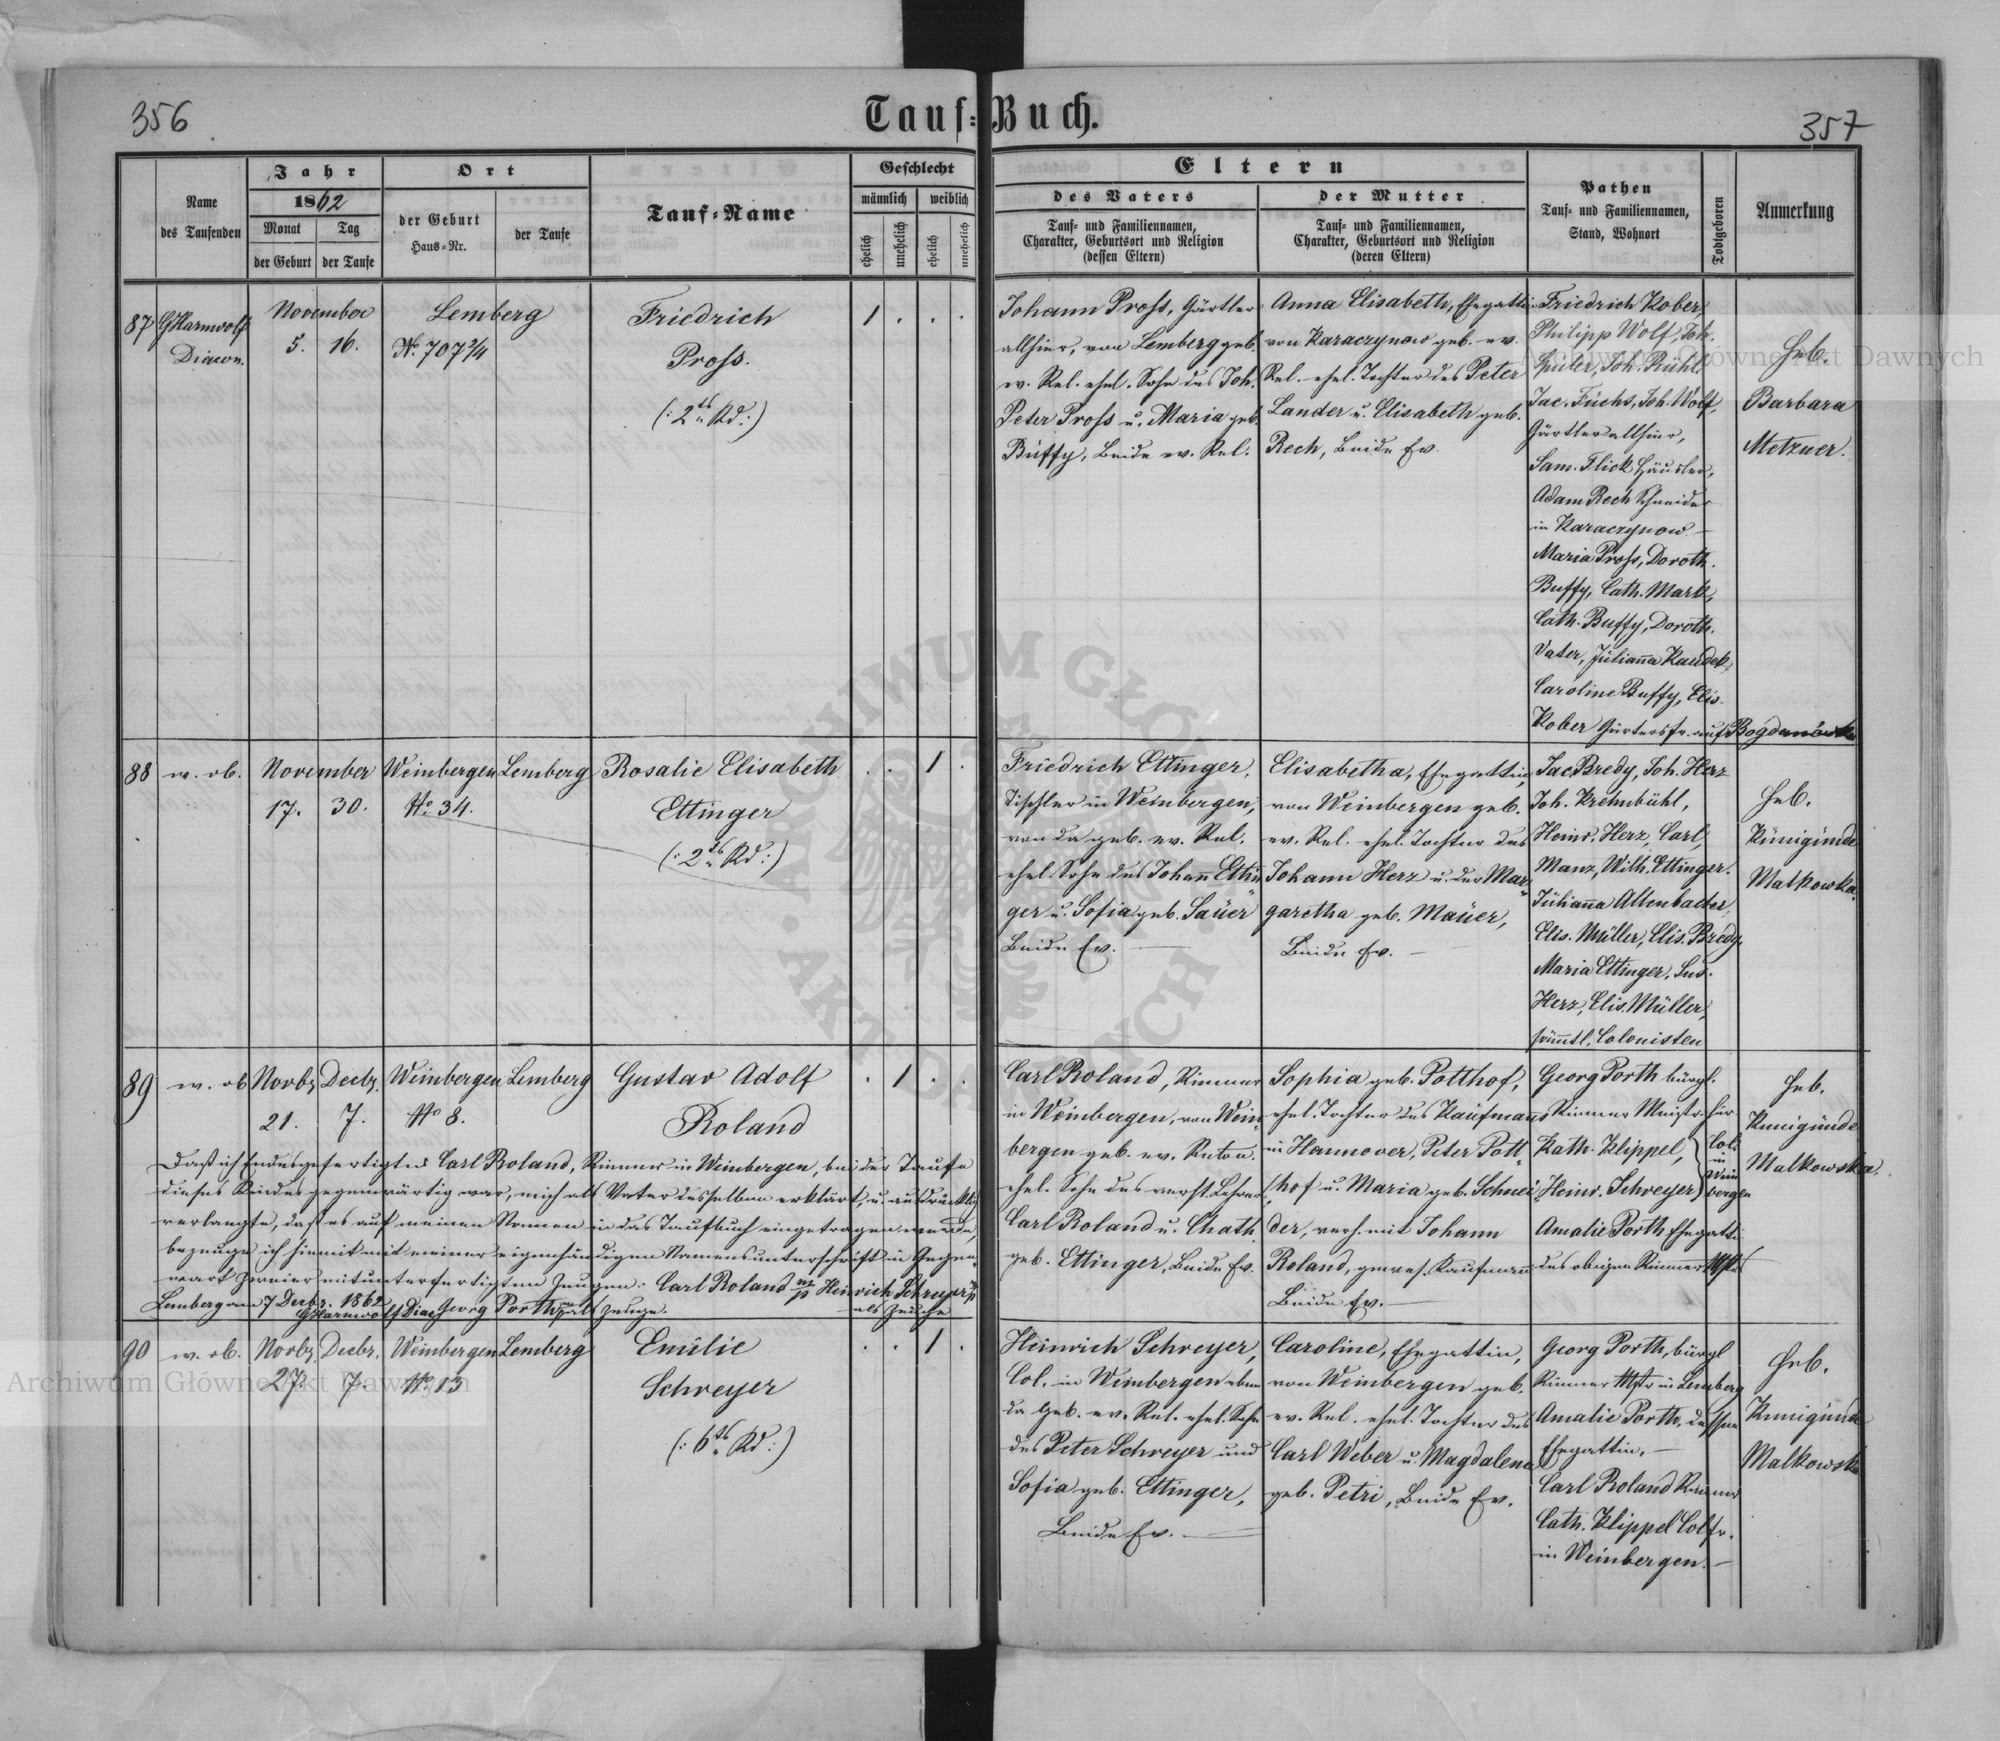 356
Tauf-Buch.
357
Name
des Taufenden
Jahr
1862
Monat
der Geburt
Tag
der Taufe
Ort
der Geburt
Haus-Nr.
der Taufe
Tauf-Name
Geschlecht
männlich
weiblich
ehelich
unehelich
ehelich
unehelich
Eltern
des Vaters
Tauf- und Familiennamen,
Charakter, Geburtsort und Religion
(dessen Eltern)
der Mutter
Tauf- und Familiennamen,
Charakter, Geburtsort und Religion
(deren Eltern)
Pathen
Tauf- und Familiennamen,
Stand, Wohnort
Todtgeboren
Anmerkung
87 GHarnwolf
Diacon.
November
5. 16.
Lemberg
No. 707 2/4
Friedrich
Pross.
(: 2tes Kd :)
1 . . .
Johann Pross, Gärtler
allhier, von Lemberg geb.
ev. Rel. ehel. Sohn des Joh.
Peter Pross u. Maria geb.
Buffy, Beide ev. Rel.
Anna Elisabeth, Ehegattin
von Karaczynow geb. ev.
Rel. ehel. Tochter des Peter
Lander u. Elisabeth geb.
Rech, Beide Ev.
Friedrich Kober,
Philipp Wolf, Joh.
Joh. Rühl,
Jac. Fuchs, Joh. Wolf,
Gärtler allhier,
Sam. Flick Häusler,
Adam Rech Schneider
in Karaczynow –
Maria Pross, Doroth.
Buffy, Cath. Mark,
Cath. Buffy, Doroth.
Vater, Julianna
Caroline Buffy, Elis.
Kober Gärtlersfr. auf Bogdanówka
Heb.
Barbara
Metzner.
88 w. ob.
November
17. 30.
Weinbergen
No. 34.
Lemberg
Rosalie Elisabeth
Ettinger
(: 2tes Kd :)
. . 1 .
Friedrich Ettinger,
Tischler in Weinbergen,
von da geb. ev. Rel.
ehel. Sohn des Johann Ettin
ger u. Sofia geb. Sauer
Beide Ev.
Elisabetha, Ehegattin,
von Weinbergen geb.
ev. Rel. ehel. Tochter des
Johann Herz u. der Mar-
garetha geb. Mauer,
Beide Ev. –
Jac. Bredy, Joh. Herz
Joh. Krehnbühl,
Heinr. Herz, Carl
Manz, Wilh. Ettinger.
Julianna Altenbacher,
Elis. Müller, Elis. Bredy,
Maria Ettinger, Sus.
Herz, Elis. Müller,
sämmtl. Colonisten
Heb.
Kunigunde
Malkowska.
89 w. ob
Novbr. Decbr.
21. 7.
Weinbergen
No 8.
Lemberg
Gustav Adolf
Roland
. 1 . .
Carl Roland, Riemer
in Weinbergen, von Wein-
bergen geb. ev.
ehel. Sohn des verst. Lehrer
Carl Roland u. Chath.
geb. Ettinger, Beide Ev.
Sophia geb. Potthof,
ehel. Tochter des Kaufmanns
in Hannover, Peter Pott-
hof u. Maria geb. Schnei
der, verh. mit Johann
Roland, gewes. Kaufmann
Beide Ev. –
Georg Porth bürgl.
Riemer Meister hier
Kath. Klippel,
Heinr. Schreyer
Col. in Weinbergen
Amalie Porth Ehegatti
des obigen Riemer Mst.
Heb.
Kunigunde
Malkowska.
Daß ich Endesgefertigter Carl Roland, Riemer in Weinbergen, bei der Taufe
dieses Kindes gegenwärtig war, mich als Vater desselben erklärt, u. ausdrücklich
verlangte, daß es auf meinen Namen in das Taufbuch eingetragen werde,
bezeuge ich hiemit mit meiner eigenhändigen Namensunterschrift in Gegen-
wart zweier mitunterfertigten Zeugen. Carl Roland mp Heinrich Schreyer mp
Lemberg am 7 Decbr. 1862 als Zeuge
GHarnwolf Diac Georg Porth mp als Zeuge.
90 w. ob.
Novbr. Decbr.
27. 7.
Weinbergen
No 13
Lemberg
Emilie
Schreyer
(: 6tes Kd :)
. . 1 .
Heinrich Schreyer,
Col. in Weinbergen eben
da geb. ev. Rel. ehel. Sohn
des Peter Schreyer und
Sofia geb. Ettinger,
Beide Ev. –
Caroline, Ehegattin,
von Weinbergen geb.
ev. Rel. ehel. Tochter des
Carl Weber u. Magdalena
geb. Petri, Beide Ev.
Georg Porth, bürgl
Riemer Mstr in Lemberg
Amalie Porth, dessen
Ehegattin. –
Carl Roland Riemer
Cath. Klippel Colfr.
in Weinbergen. –
Heb.
Kunigunde
Malkowska
Archiwum Główne Akt Dawnych
ARCHIWUM GŁÓWNE
AKT DAWNYCH
Archiwum Główne Akt Dawnych